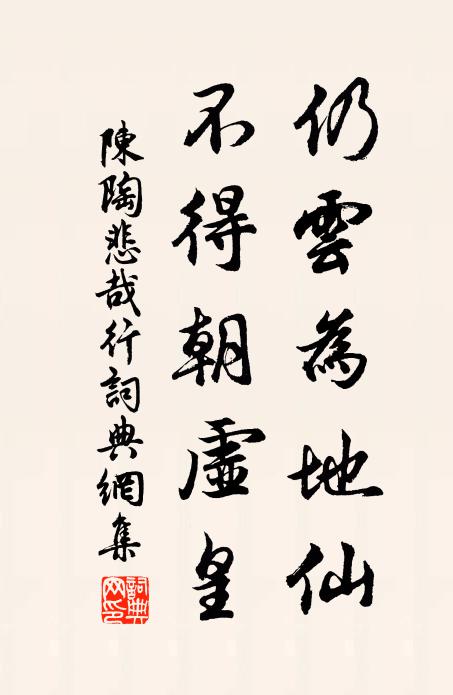 仍雲為地仙
不得朝虛皇
陳陶悲哉行詞典網集
詞典網印